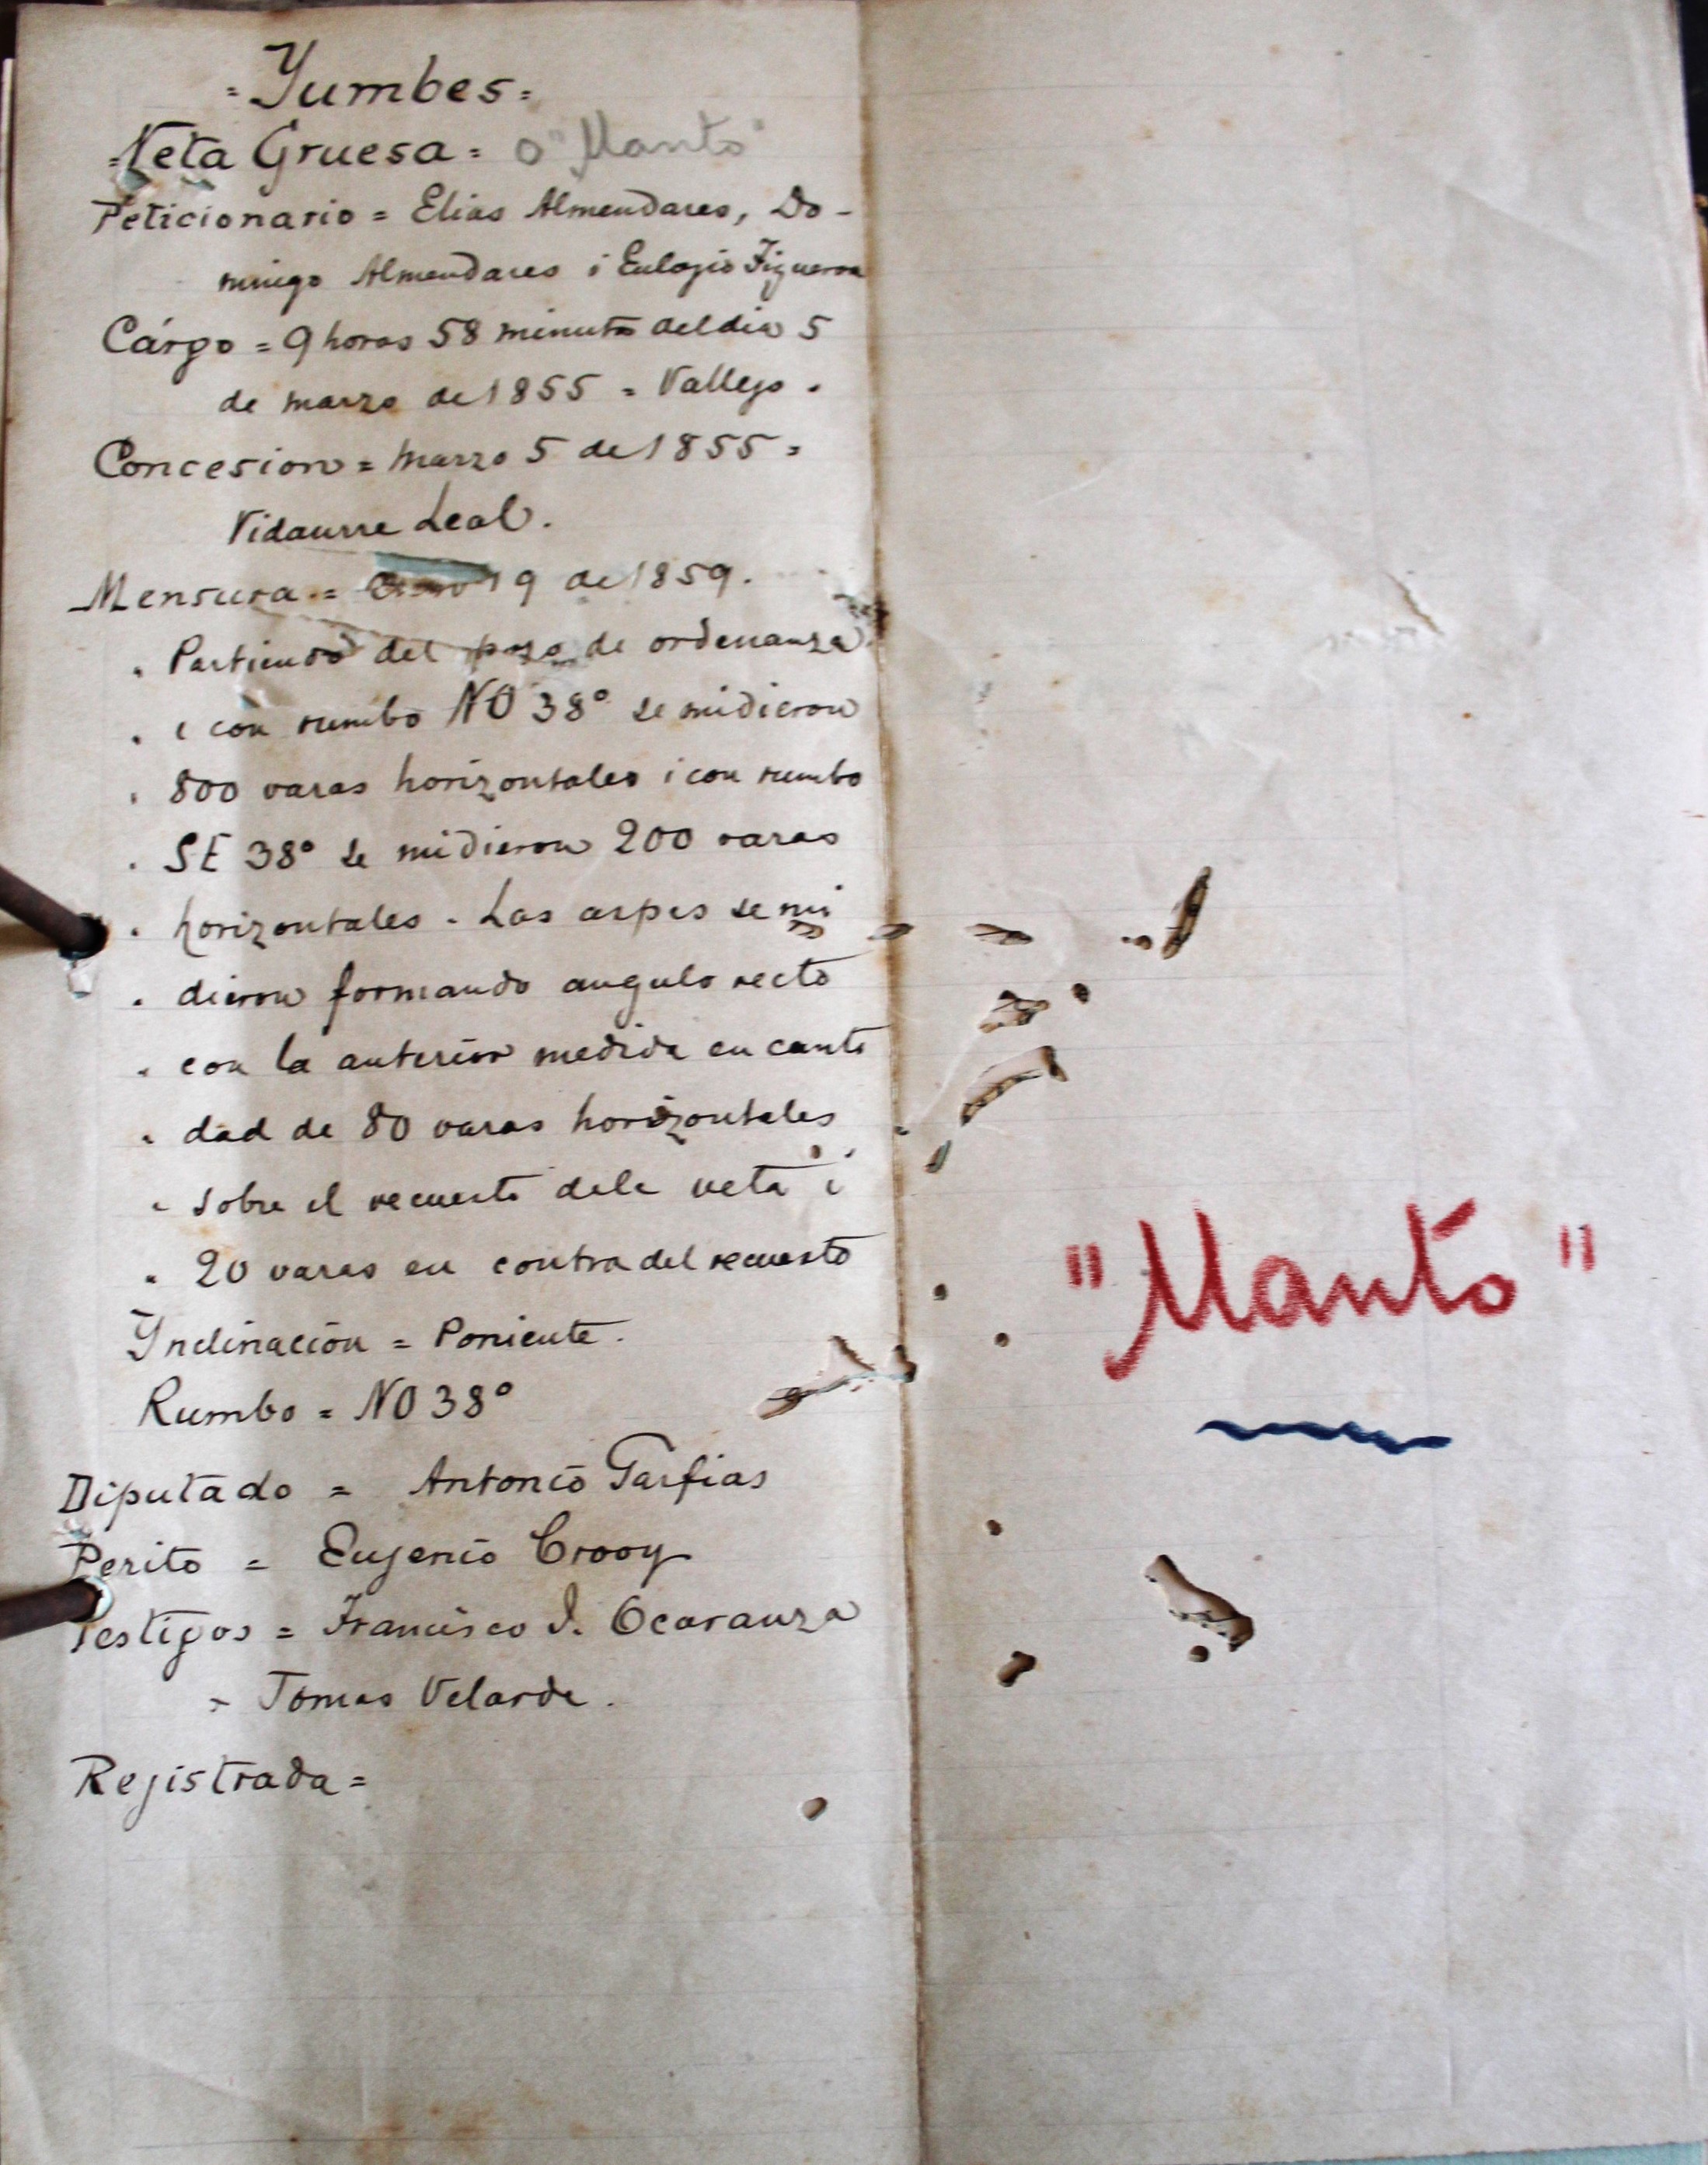 = Yumbes =
= Veta Gruesa = o "Manto"
Peticionario = Elias Almendares, Do-
mingo Almendares i Eulogio Figueroa
Cárgo = 9 horas 58 minutos del dia 5
de marzo de 1855 = Vallejo.
Concesion = marzo 5 de 1855 =
Vidaurre Leal.
Mensura = 19 de 1859.
" Partiendo del pozo de ordenanza
" i con rumbo NO 38° se midieron
" 800 varas horizontales i con rumbo
" SE 38° se midieron 200 varas
" horizontales. Las aspas se mi
" dieron formando angulo recto
" con la anterior medida en canti
" dad de 80 varas horizontales
" sobre el recuesto de la veta i
" 20 varas en contra del recuesto
Ynclinación = Poniente.
Rumbo = NO 38°
Diputado = Antonio Garfias
Perito = Eugenio Crooy
Testigos = Francisco I. Ocaranza
" Tomas Velarde.
Registrada =
"Manto"